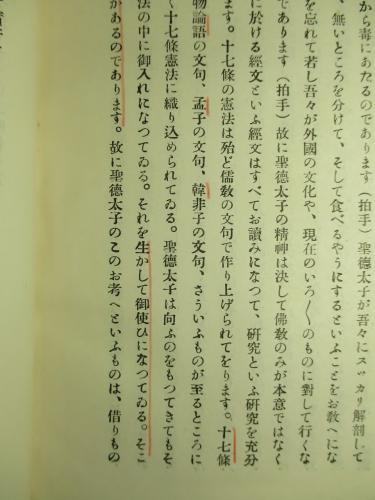 から毒にあたるのであります（拍手）聖德太子が吾々にスッカリ解剖して
、無いところを分けて、そして食べるやうにするといふことをお敎へにな
を忘れて若し吾々が外國の文化や、現在のいろ〱のものに對して行くな
であります（拍手）故に聖德太子の精神は決して佛敎のみが本意ではなく
に於ける經文といふ經文はすべてお讀みになつて、硏究といふ硏究を充分
ます。十七條の憲法は殆ど儒敎の文句で作り上げられてをります。十七條
物論語の文句、孟子の文句、韓非子の文句、さういふものが至るところに
く十七條憲法に織り込められてゐる。聖德太子は向ふのをもつてきてもそ
法の中に御入れになつてゐる。それを生かして御使ひになつてゐる。そこ
があるのであります。故に聖德太子のこのお考へといふものは、借りもの